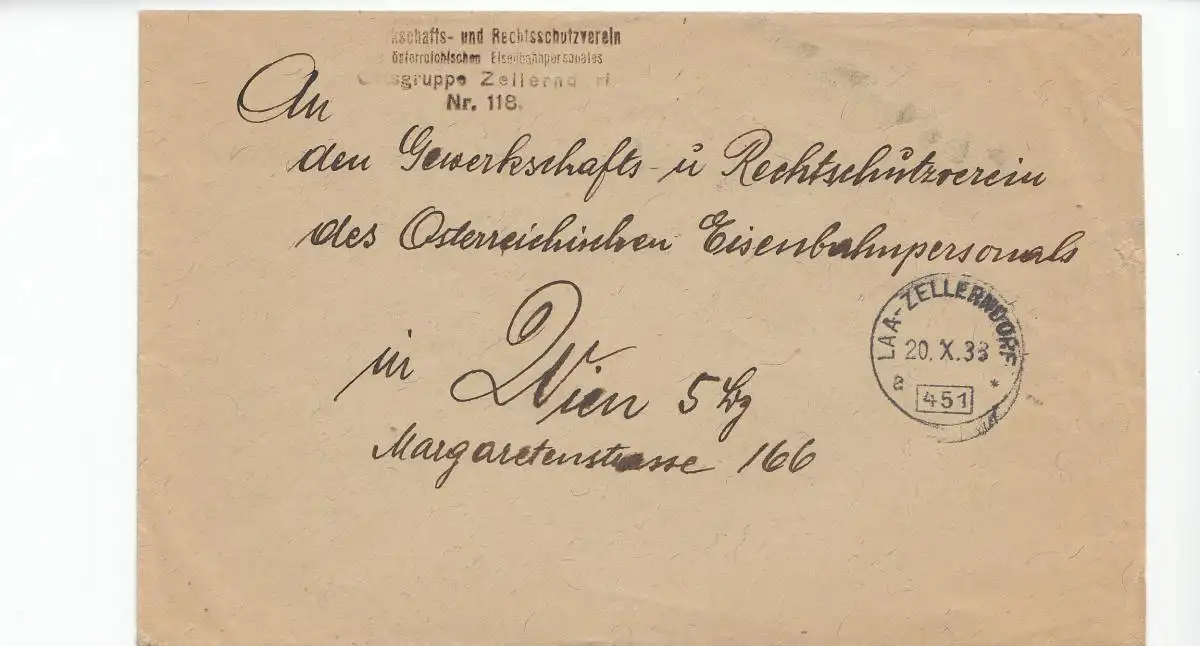 und Rechtsschutzverein
österreichischen Eisenbahnpersonales
Ortsgruppe Zellerndorf
Nr. 118.
An
den Gewerkschafts- u Rechtschutzverein
des Österreichischen Eisenbahnpersonals
in Wien 5 Bz
Margaretenstrasse 166
LAA-ZELLERNDORF
20. X. 33
a *
451